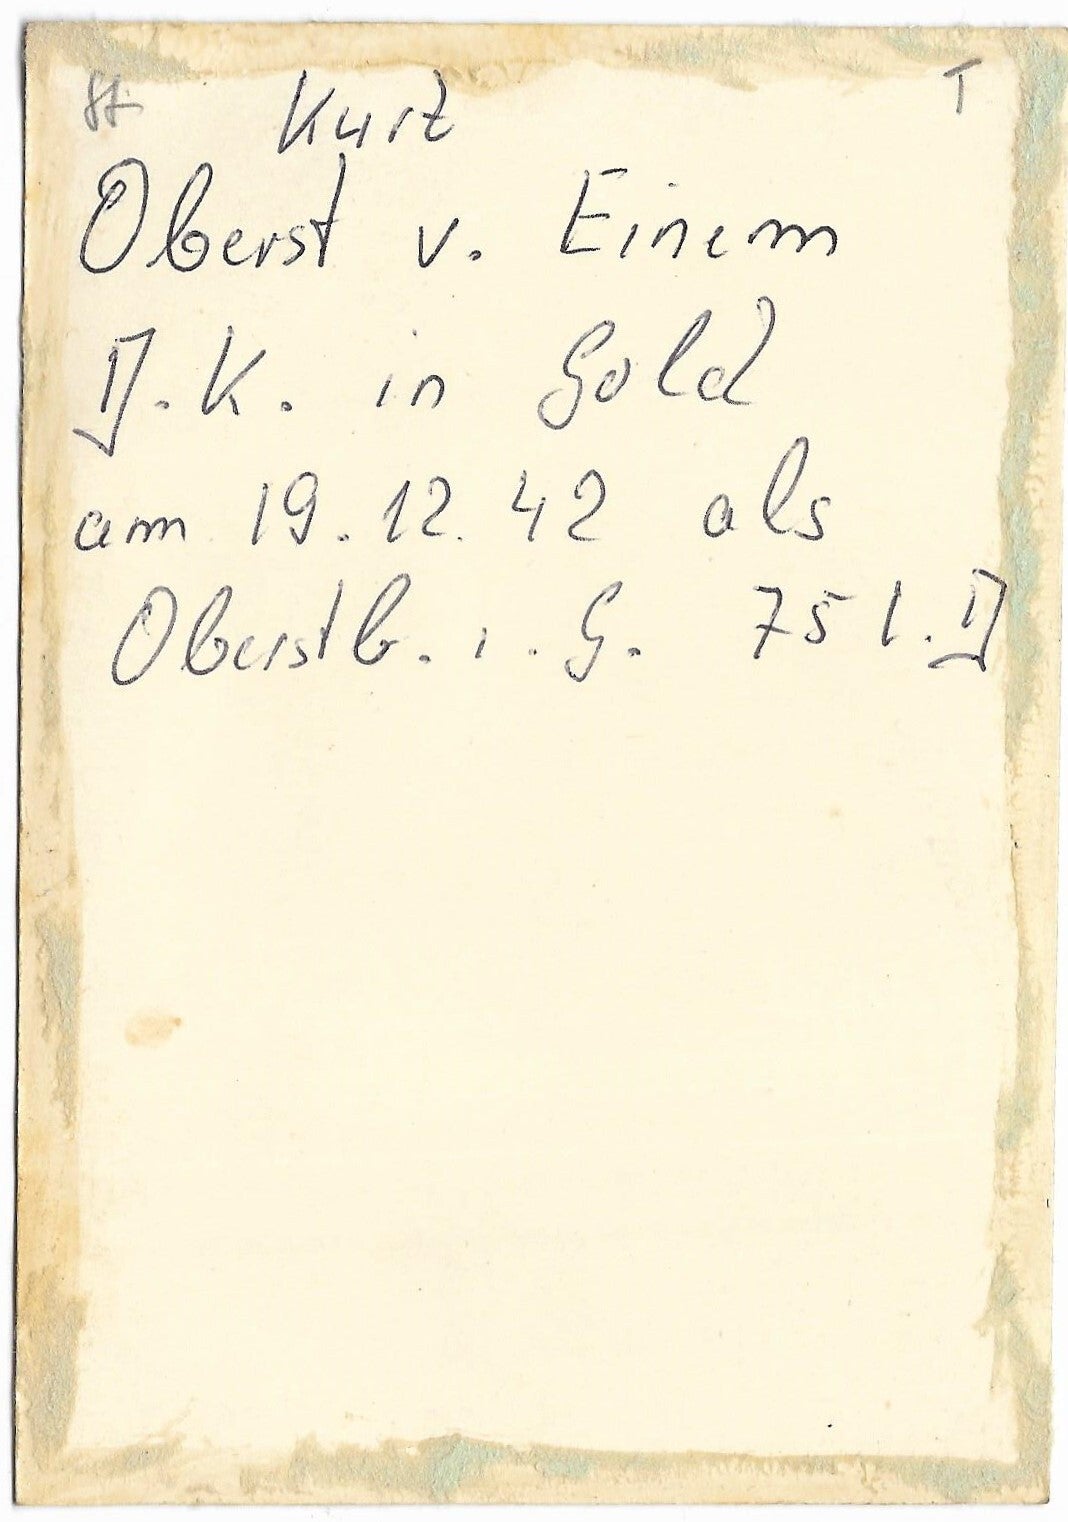 Kurt
T
Oberst v. Einem
D.K. in Gold
am 19.12.42 als
Oberstlt. i. G. 75 I.D